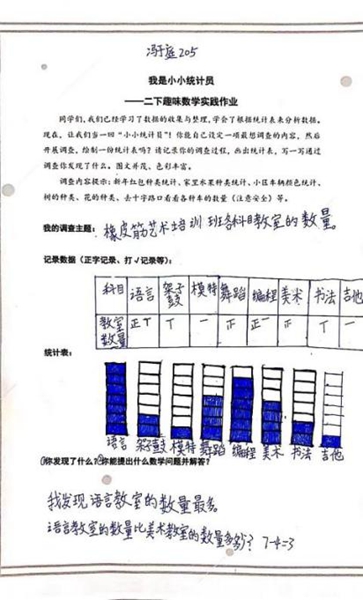 冯子庭 205
我是小小统计员
——二下趣味数学实践作业
同学们,我们已经学习了数据的收集与整理,学会了根据统计表来分析数据。
现在,让我们当一回“小小统计员”!你能自己设定一项最想调查的内容,然后
开展调查,绘制一份统计表吗?请记录你的调查过程,画出统计表,写一写通过
调查你发现了什么。图文并茂、色彩丰富。
调查内容提示:新年红包种类统计、家里水果种类统计、小区车辆颜色统计、
树的种类、花的种类、去十字路口看看各种车的数量(注意安全)等。
我的调查主题:橡皮筋艺术培训班各科目教室的数量
记录数据(正字记录、打√记录等):
科目 语言 架子鼓 模特 舞蹈 编程 美术 书法 吉他
教室数量
统计表:
语言 架子鼓 模特 舞蹈 编程 美术 书法 吉他
你发现了什么?你能提出什么数学问题并解答?
我发现语言教室的数量最多
语言教室的数量比美术教室的数量多多少? 7-4=3